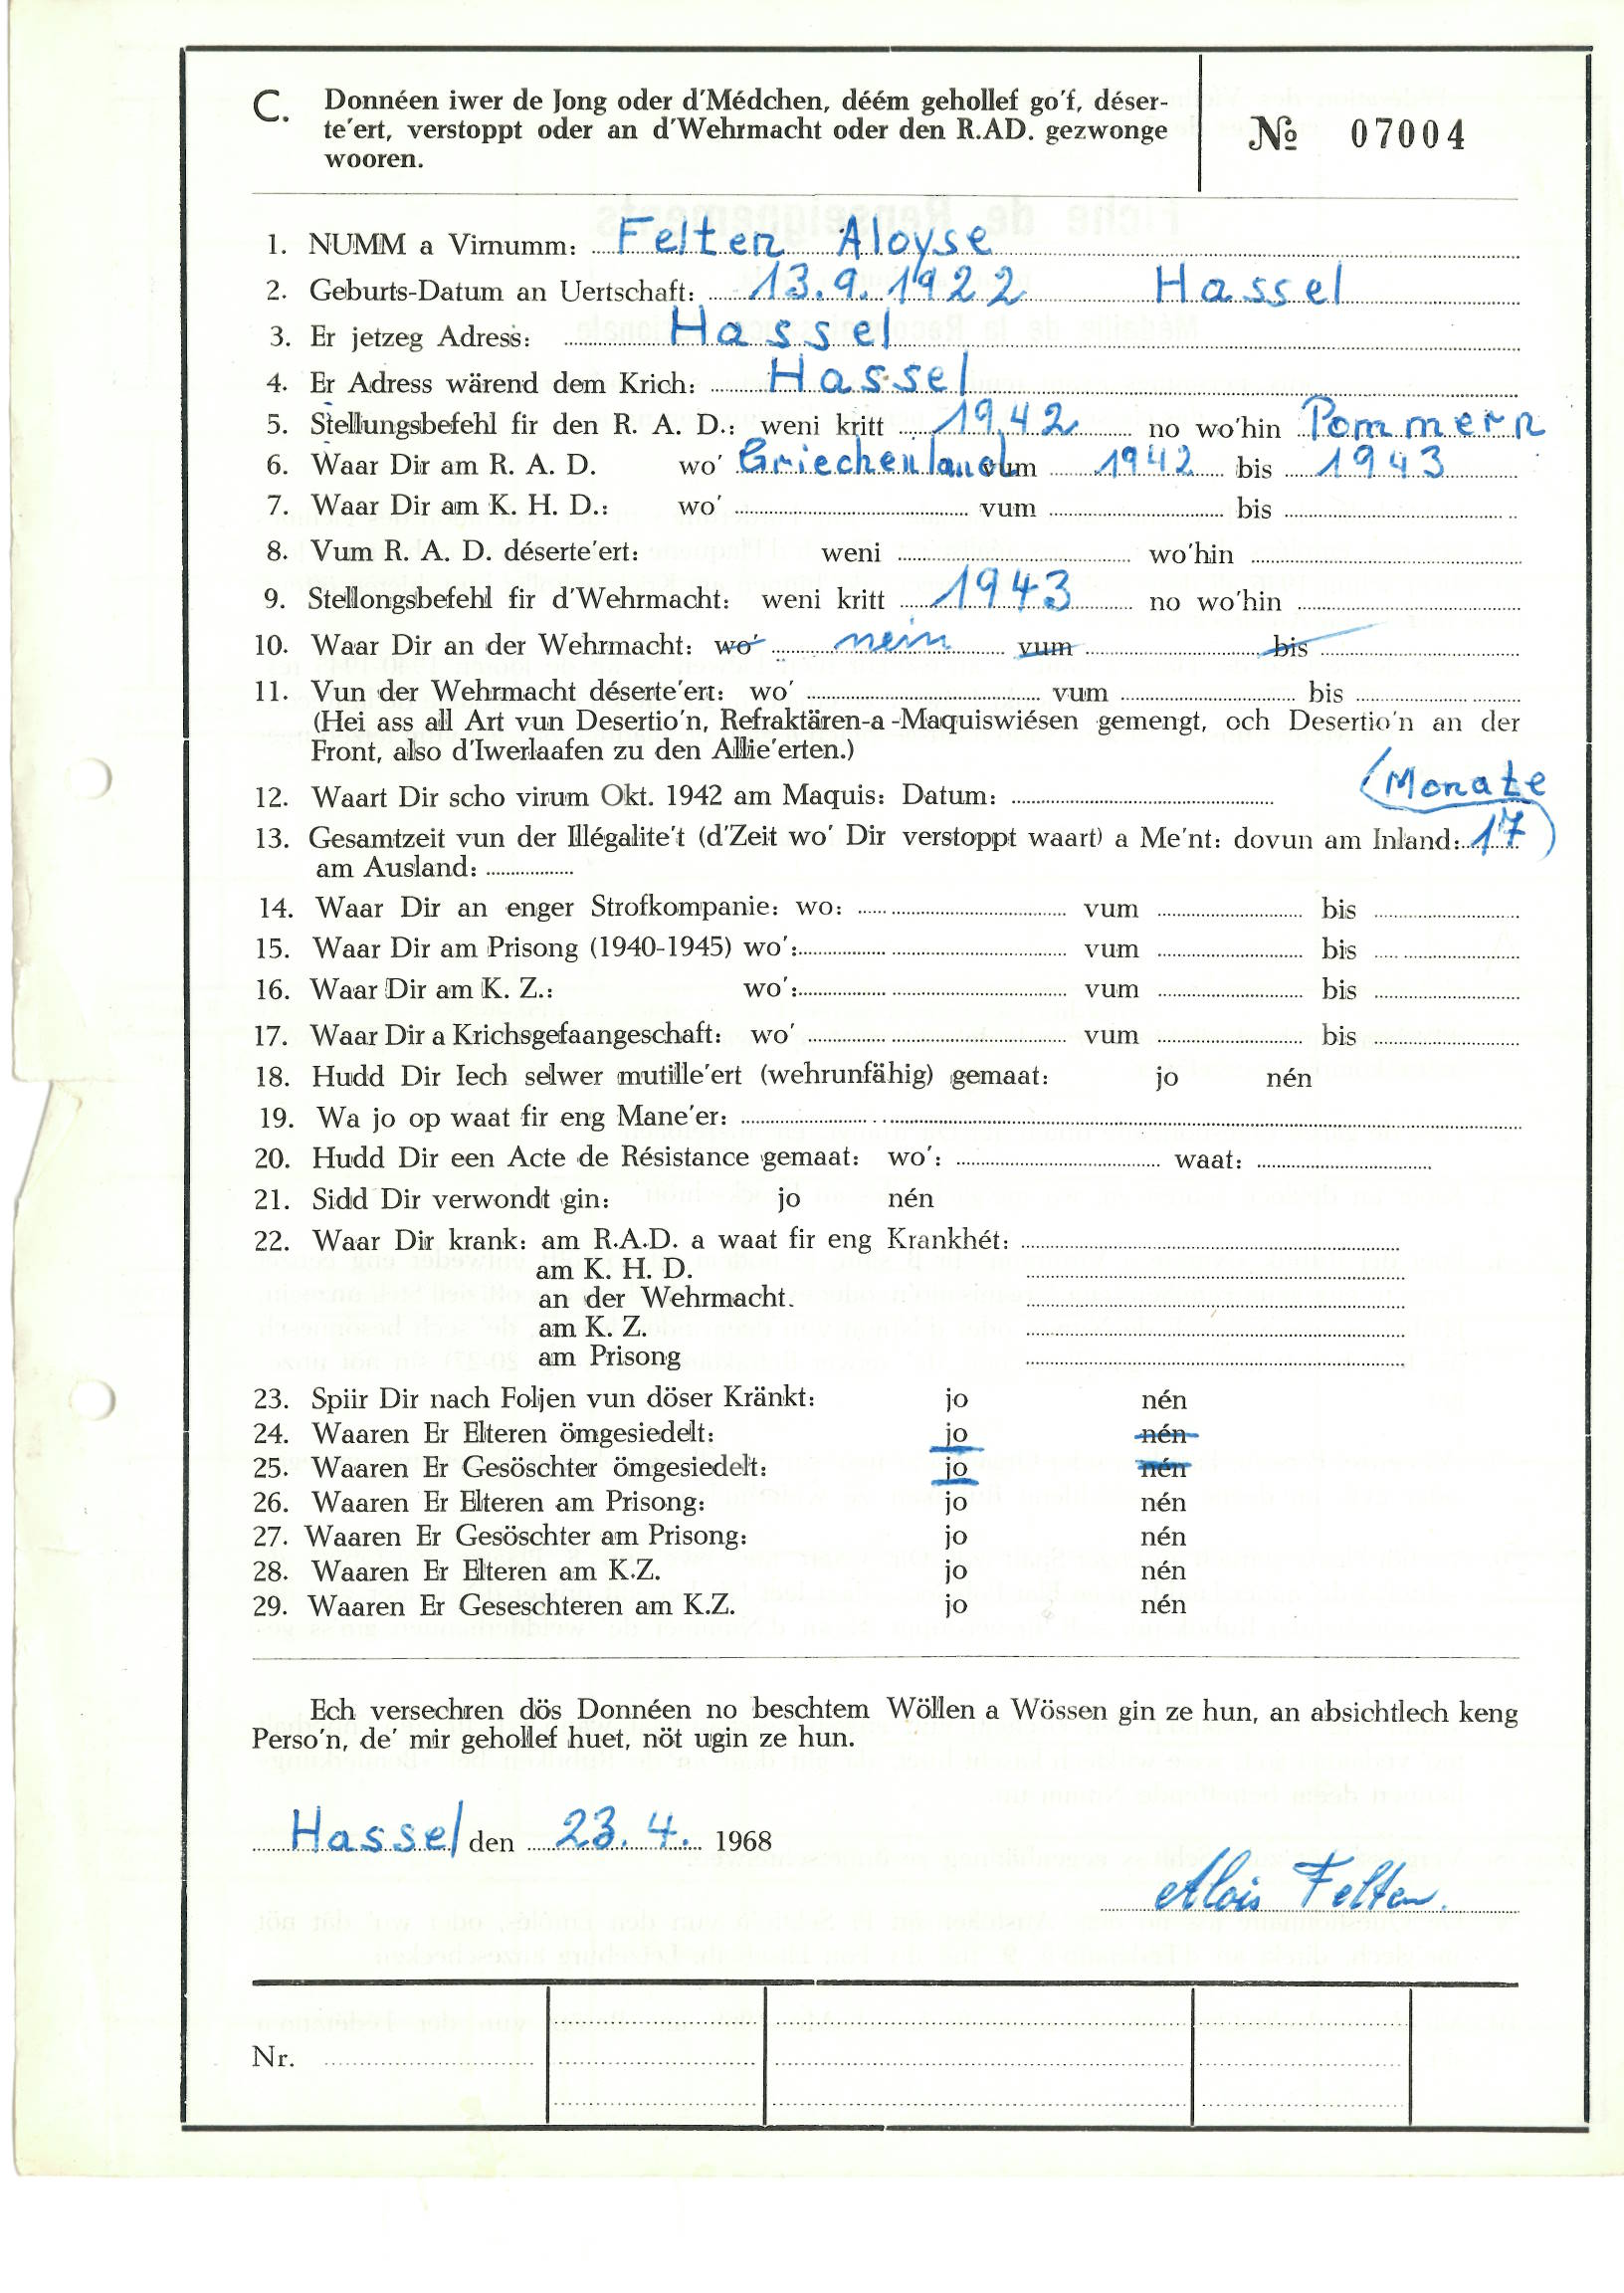 C. Donnéen iwer de Jong oder d'Médchen, déém gehollef go'f, déser-
te'ert, verstoppt oder an d'Wehrmacht oder den R.AD. gezwonge
wooren.
№ 07004
1. NUMM a Virnumm: Felten Aloyse
2. Geburts-Datum an Uertschaft: 13.9.1922 Hassel
3. Er jetzeg Adress: Hassel
4. Er Adress wärend dem Krich: Hassel
5. Stellungsbefehl fir den R. A. D.: weni kritt 1942 no wo'hin Pommern
6. Waar Dir am R. A. D. wo' Griechenland vum 1942 bis 1943
7. Waar Dir am K. H. D.: wo' vum bis
8. Vum R. A. D. déserte'ert: weni wo'hin
9. Stellongsbefehl fir d'Wehrmacht: weni kritt 1943 no wo'hin
10. Waar Dir an der Wehrmacht: wo' nein vum bis
11. Vun der Wehrmacht déserte'ert: wo' vum bis
(Hei ass all Art vun Desertio'n, Refraktären-a-Maquiswiésen gemengt, och Desertio'n an der
Front, also d'Iwerlaafen zu den Allie'erten.)
12. Waart Dir scho virum Okt. 1942 am Maquis: Datum: (Monate
13. Gesamtzeit vun der Illégalite't (d'Zeit wo' Dir verstoppt waart) a Me'nt: dovun am Inland: 17)
am Ausland:
14. Waar Dir an enger Strofkompanie: wo: vum bis
15. Waar Dir am Prisong (1940-1945) wo': vum bis
16. Waar Dir am K. Z.: wo': vum bis
17. Waar Dir a Krichsgefaangeschaft: wo' vum bis
18. Hudd Dir Iech selwer mutille'ert (wehrunfähig) gemaat: jo nén
19. Wa jo op waat fir eng Mane'er:
20. Hudd Dir een Acte de Résistance gemaat: wo': waat:
21. Sidd Dir verwondt gin: jo nén
22. Waar Dir krank: am R.A.D. a waat fir eng Krankhét:
am K. H. D.
an der Wehrmacht.
am K. Z.
am Prisong
23. Spiir Dir nach Foljen vun döser Kränkt: jo nén
24. Waaren Er Elteren ömgesiedelt: jo nén
25. Waaren Er Gesöschter ömgesiedelt: jo nén
26. Waaren Er Elteren am Prisong: jo nén
27. Waaren Er Gesöschter am Prisong: jo nén
28. Waaren Er Elteren am K.Z. jo nén
29. Waaren Er Geseschteren am K.Z. jo nén
Ech versechren dös Donnéen no beschtem Wöllen a Wössen gin ze hun, an absichtlech keng
Perso'n, de' mir gehollef huet, nöt ugin ze hun.
Hassel den 23. 4. 1968
Alois Felten.
Nr.